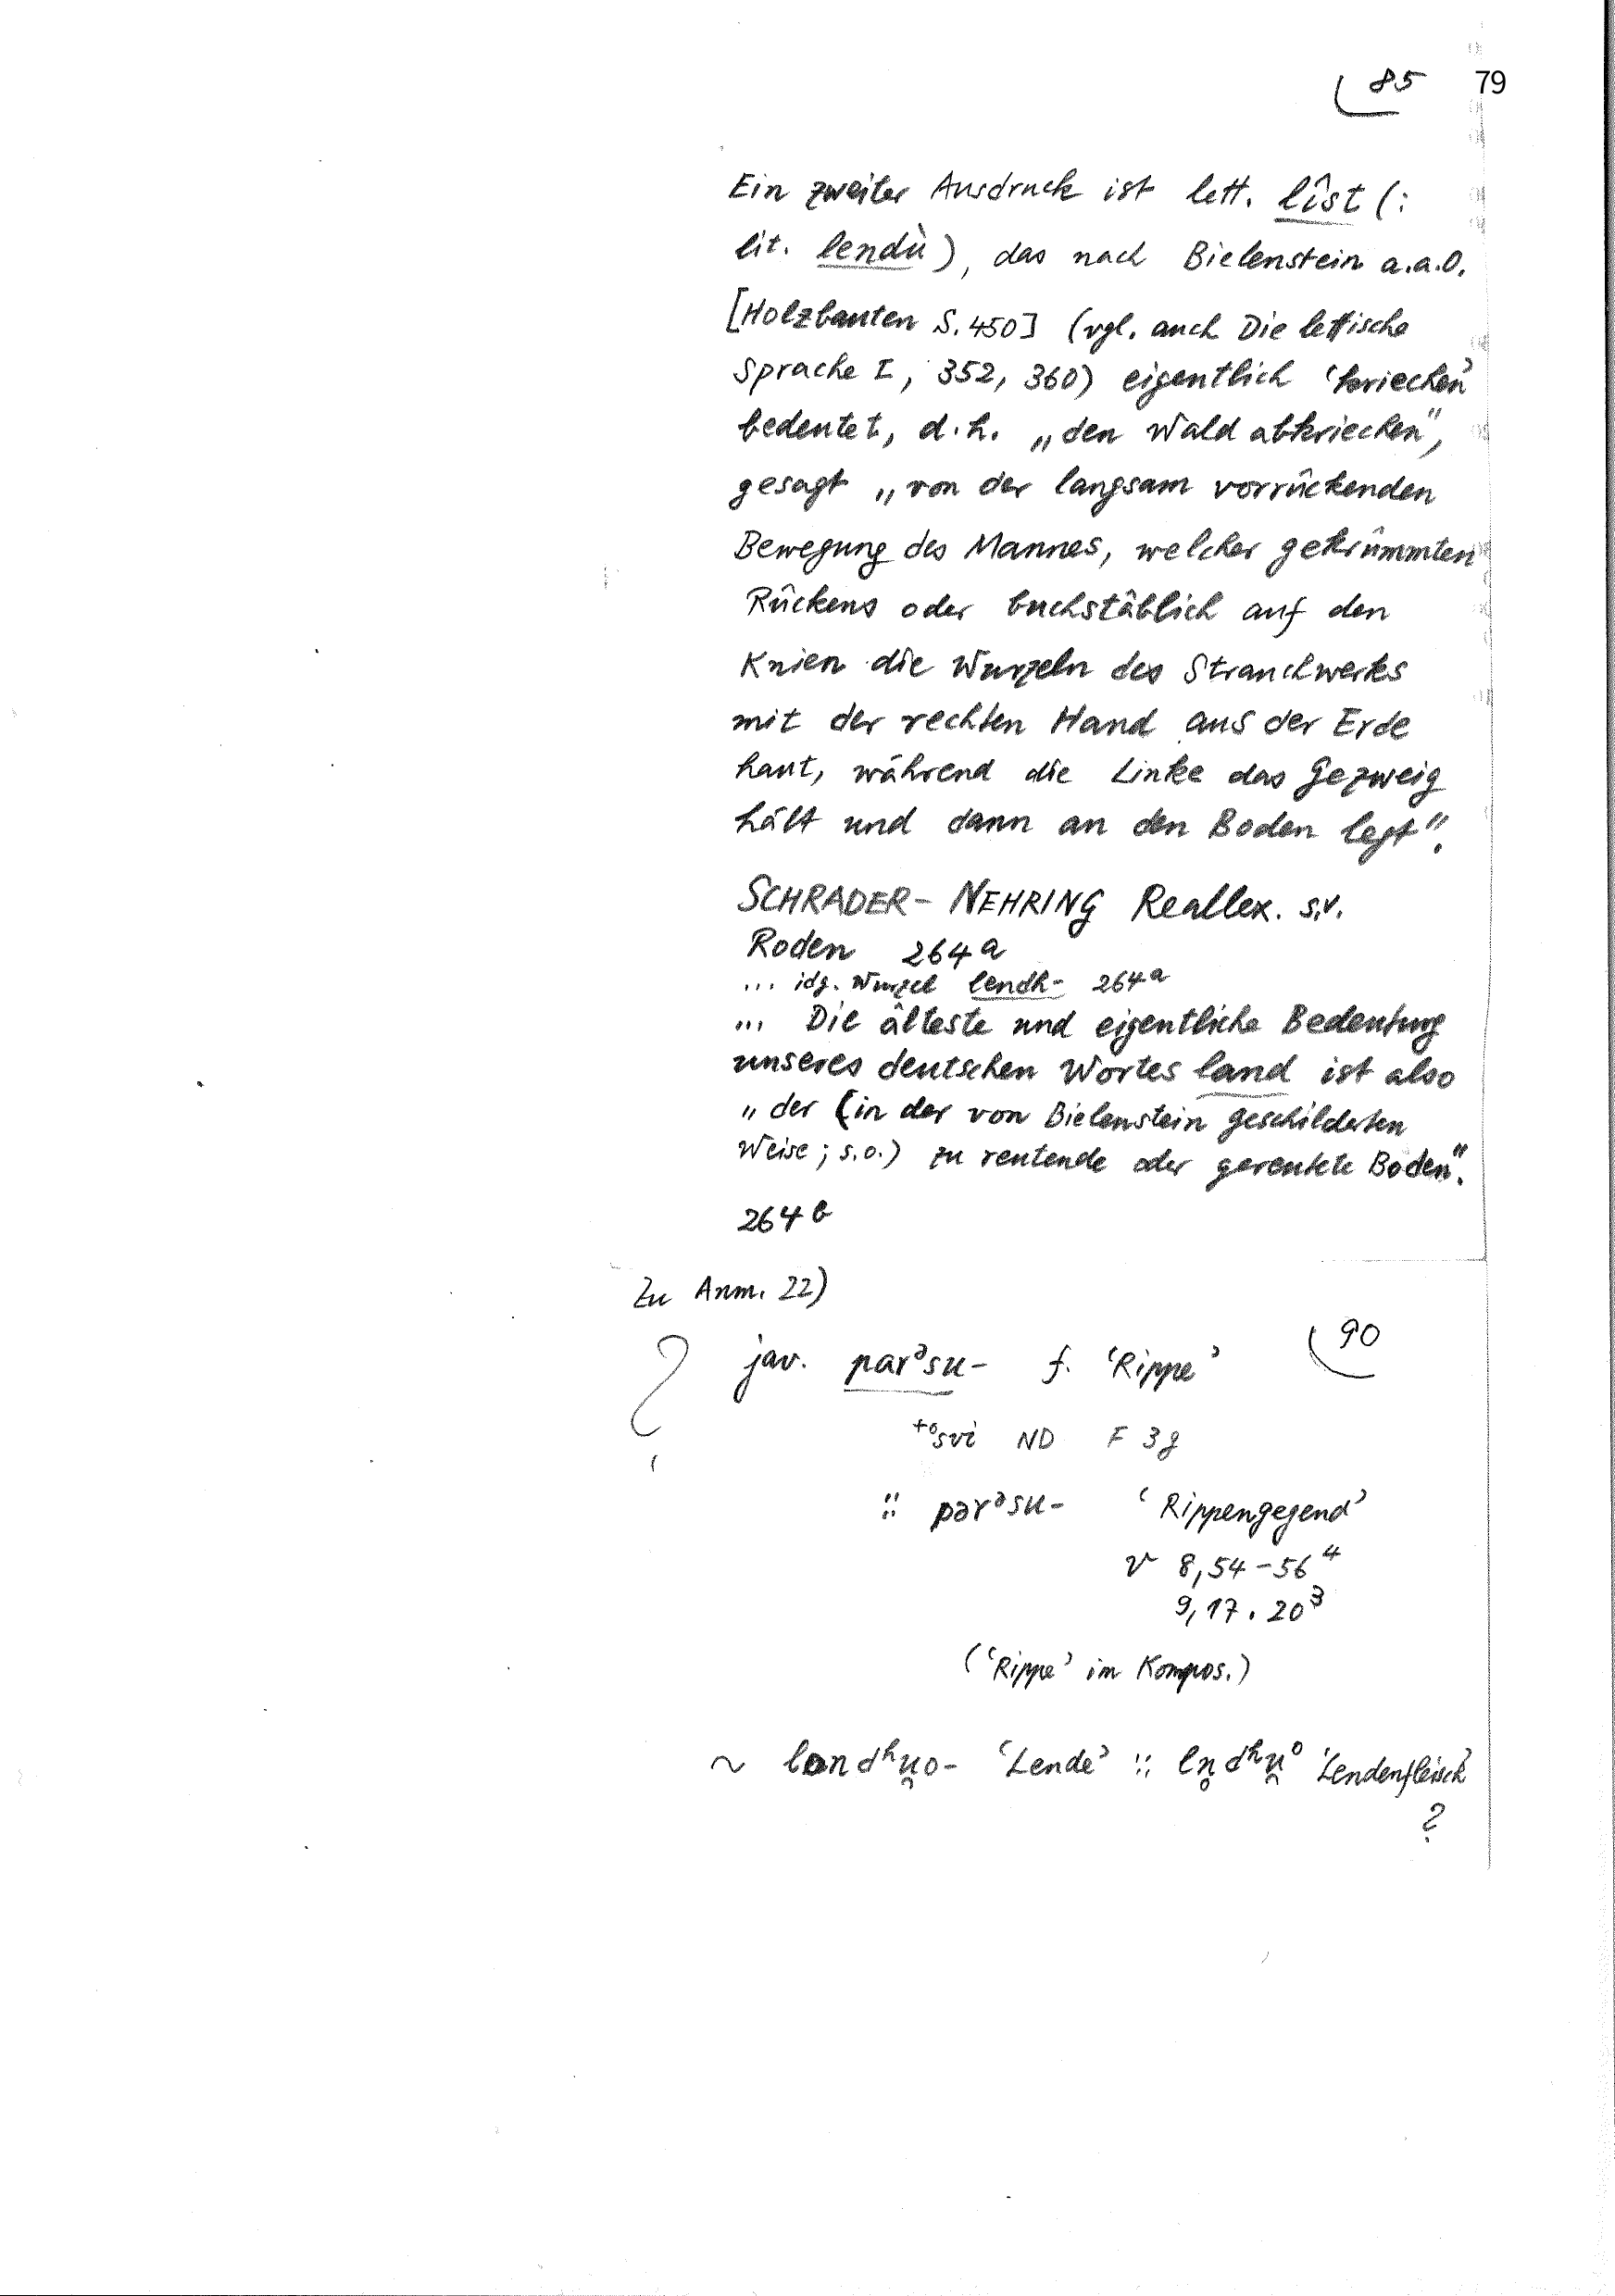 85 79
Ein zweiter Ausdruck ist lett. lîst (:
lit. lendù), das nach Bielenstein a.a.O.
[Holzbauten S. 450] (vgl. auch Die lettische
Sprache I, 352, 360) eigentlich ‘kriechen’
bedeutet, d.h. „den Wald abkriechen”,
gesagt „von der langsam vorrückenden
Bewegung des Mannes, welcher gekrümmten
Rückens oder buchstäblich auf den
Knien die Wurzeln des Strauchwerks
mit der rechten Hand aus der Erde
haut, während die Linke das Gezweig
hält und dann an den Boden legt”.
SCHRADER-NEHRING Reallex. s.v.
Roden 264ᵃ
... idg. Wurzel lendh- 264ᵃ
... Die älteste und eigentliche Bedeutung
unseres deutschen Wortes land ist also
„der (in der von Bielenstein geschilderten
Weise; s.o.) zu reutende oder gereutete Boden”.
264ᵇ
Zu Anm. 22)
90
? jav. parᵊsu- f. ‘Rippe’
⁺°svi ND F 3g
:: pərᵊsu- ‘Rippengegend’
V 8,54-56⁴
9,17. 20³
(‘Rippe’ im Kompos.)
~ londʰu̯o- ‘Lende’ :: ln̥dʰu̯° ‘Lendenfleisch’
?